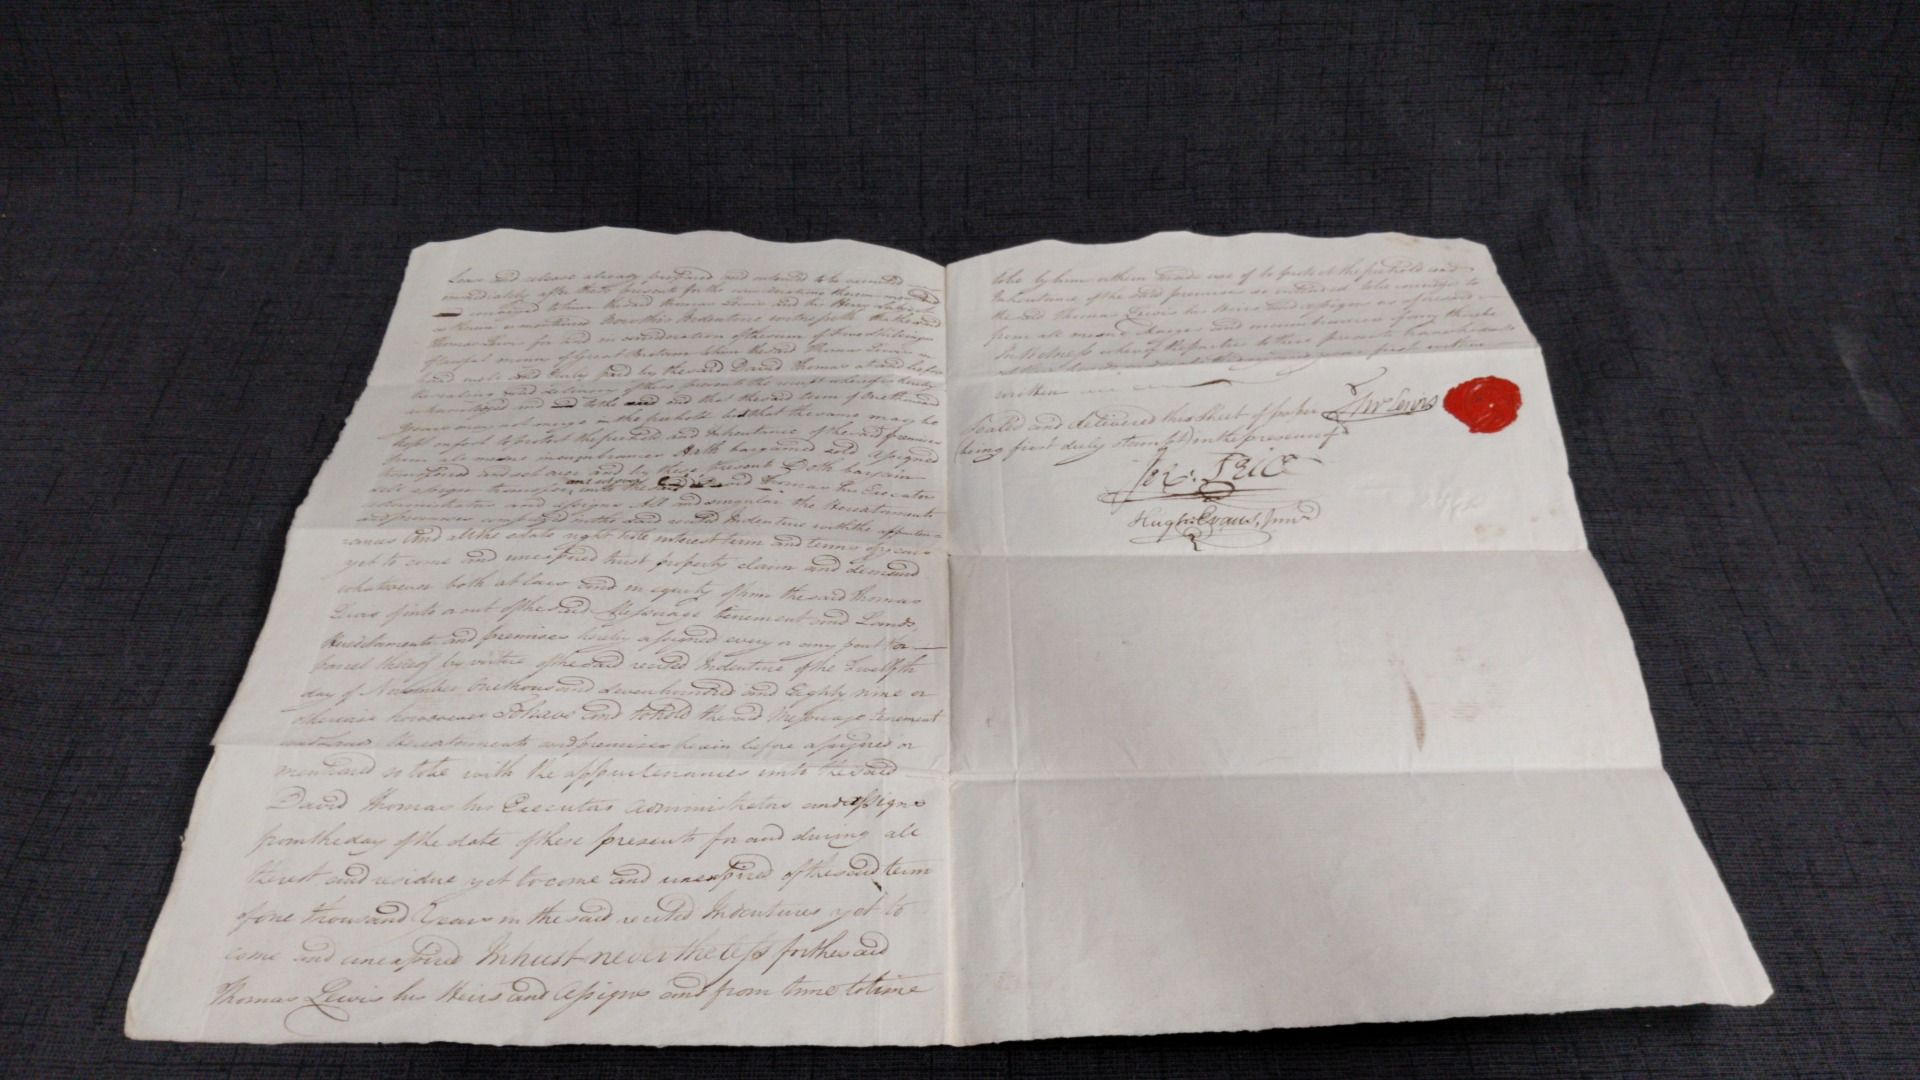 Lease and release already prepared and intended to be executed
immediately after these presents for the considerations therein
conveyed to him the said Thomas Lewis and his Heirs
as therein mentioned Now this Indenture witnesseth that the said
Thomas Lewis for and in consideration of the sum of five shillings
of lawful money of Great Britain to him the said Thomas Lewis in
hand well and truly paid by the said David Thomas at and before
the sealing and delivery of these presents the receipt whereof is hereby
and to the and that the said term of One thousand
years may not merge in the freehold but that the same may be
kept on foot to protect the freehold and Inheritance of the said premises
from all mesne incumbrances Hath bargained sold assigned
transferred and set over and by these presents Doth bargain
sell assign transfer and set over unto the said David Thomas his Executors
Administrators and assigns All and singular the Hereditaments
and premises comprized in the said recited Indenture with the appurten-
ances And all the estate right title interest term and terms of years
yet to come and unexpired trust property claim and demand
whatsoever both at law and in equity of him the said Thomas
Lewis of into or out of the said Messuage tenement and Lands,
Hereditaments and premises hereby assigned every or any part or
parcel thereof by virtue of the said recited Indenture of the Twelfth
day of November One thousand seven hundred and Eighty nine or
otherwise howsoever To have and to hold the said Messuage Tenement
and Lands Hereditaments and premises herein before assigned or
mentioned so to be with the appurtenances unto the said
David Thomas his Executors Administrators and assigns
from the day of the date of these presents for and during all
the rest and residue yet to come and unexpired of the said term
of one thousand Years in the said recited Indentures yet to
come and unexpired In trust nevertheless for the said
Thomas Lewis his Heirs and Assigns and from time to time
to be by him or them made use of to protect the freehold and
Inheritance of the said premises so intended to be conveyed to
the said Thomas Lewis his Heirs and assigns as aforesaid
from all mesne charges and incumbrances if any there be
In Witness whereof the parties to these presents have hereunto
set their hands and seals the day and year first within
written
Thos Lewis
Sealed and delivered this Sheet of paper
(being first duly stampt) in the presence of
Jer: Price
Hugh Evans, Junr